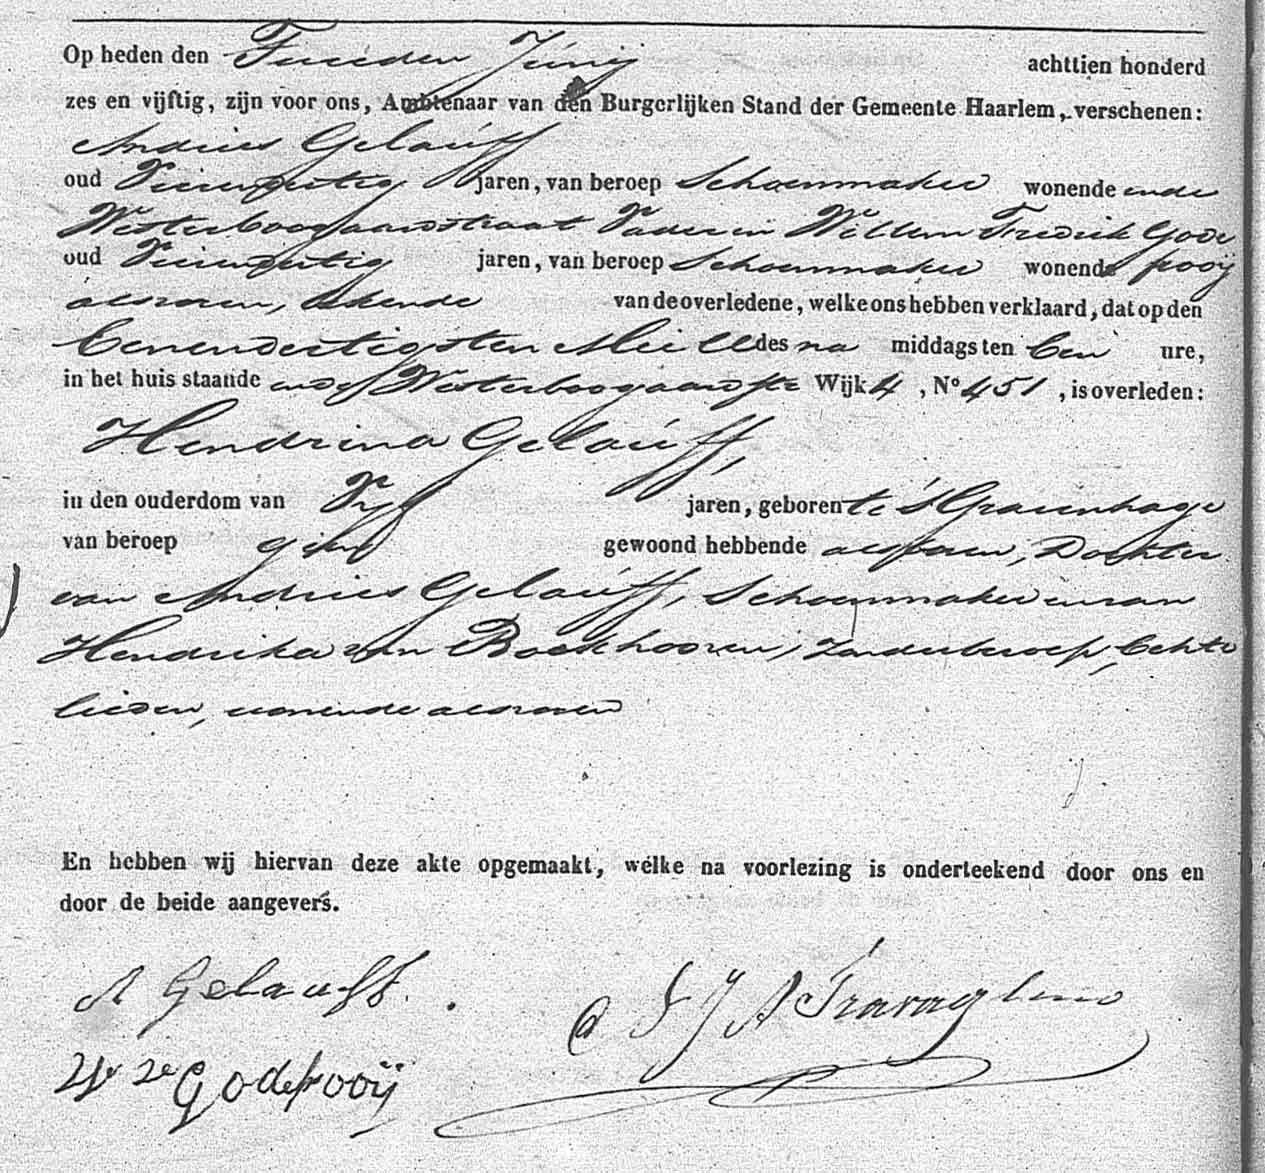 Op heden den Tweeden Junij achttien honderd
zes en vijftig, zijn voor ons, Ambtenaar van den Burgerlijken Stand der Gemeente Haarlem, verschenen:
Andries Gelauff
oud Vierenveertig jaren, van beroep Schoenmaker wonende in de
Westerboogaardstraat Vader en Willem Fredrik Gode
oud Vierenveertig jaren, van beroep Schoenmaker wonende frooij
alvoren, bekende van de overledene, welke ons hebben verklaard, dat op den
Eenendertigsten Mei ll des na middags ten Een ure,
in het huis staande in de Westerboogaardstr Wijk 4, No 451, is overleden:
Hendrina Gelauff,
in den ouderdom van Vijf jaren, geboren te 's Gravenhage
van beroep geene gewoond hebbende alvoren, Dochter
van Andries Gelauff, Schoenmaker en van
Hendrika van Boekhooven, zonder beroep, Echte
lieden, wonende alvoren
En hebben wij hiervan deze akte opgemaakt, welke na voorlezing is onderteekend door ons en
door de beide aangevers.
A Gelauff.
Godefrooij
S J A Travaglino